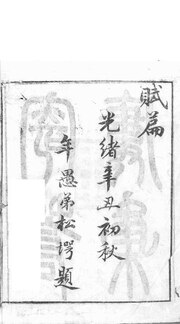 賦篇
光緒辛丑初秋
年愚弟松愕題